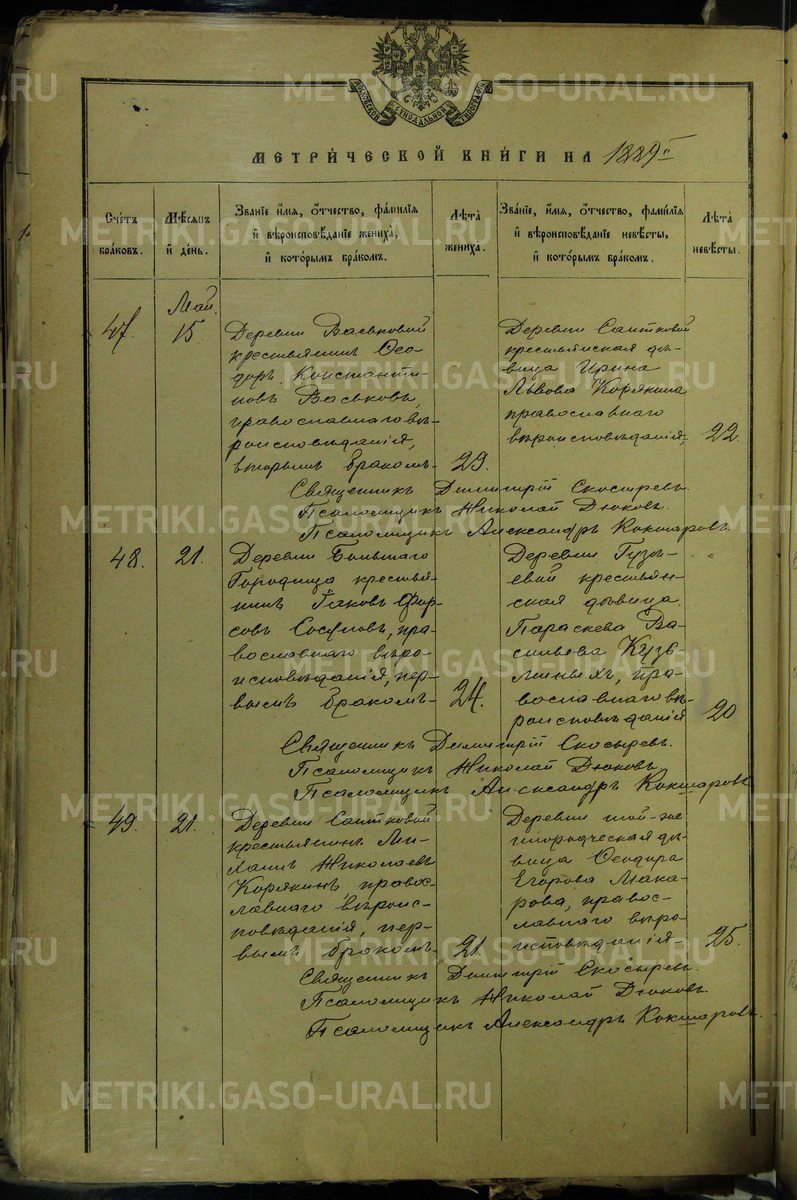 МЕТРИ́ЧЕСКОЙ КНИ́ГИ НА 1889 г.
Сче́тъ браковъ.
Мѣсяцъ и́ де́нь.
Зва́нїе и́мя, о́тчество, фами́лїя
и́ вѣроисповѣ́данїе жениха̀,
и́ кото́рымъ бра́комъ.
Лѣта̀ жениха.
Зва́нїе, и́мя, о́тчество, фами́лїя
и́ вѣроисповѣ́данїе невѣ́сты,
и́ кото́рымъ бра́комъ.
Лѣта̀ невѣ́сты.
Май.
47.
15.
Деревни Васьковой
крестьянинъ Ѳео-
доръ Константи-
новъ Васьковъ,
православнаго вѣ-
роисповѣданія,
вторымъ бракомъ
29.
Деревни Саитковой
крестьянская дѣ-
вица Ирина
Львова Корякина
православнаго
вѣроисповѣданія,
22.
Священникъ Димитрій Скосыревъ.
Псаломщикъ Николай Дюковъ.
Псаломщикъ Александръ Кокшаровъ
48.
21.
Деревни Большаго
Городища крестья-
нинъ Іаковъ Фир-
совъ Сосуновъ, пра-
вославнаго вѣро-
исповѣданія, пер-
вымъ бракомъ
24.
Деревни Гузѣ-
евой крестьян-
ская дѣвица
Параскева Ва-
сильева Кузь-
миныхъ, пра-
вославнаго вѣ-
роисповѣданія
20
Священникъ Димитрій Скосыревъ.
Псаломщикъ Николай Дюковъ
Псаломщикъ Александръ Кокшаровъ
49.
21.
Деревни Саитковой
крестьянинъ Ми-
хаилъ Николаевъ
Корякинъ правос-
лавнаго вѣроис-
повѣданія, пер-
вымъ бракомъ
21.
Деревни той-же
инородческая дѣ-
вица Ѳеодора
Егорова Мака-
рова, правос-
лавнаго вѣро-
исповѣданія
25.
Священникъ Димитрій Скосыревъ.
Псаломщикъ Николай Дюковъ.
Псаломщикъ Александръ Кокшаровъ.
METRIKI.GASO-URAL.RU